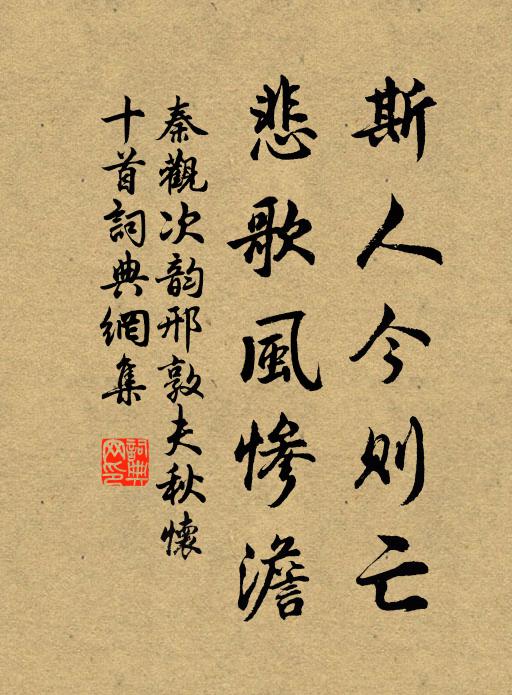 斯人今則亡
悲歌風慘澹
秦觀次韵邢敦夫秋懷
十首詞典網集
詞典網印